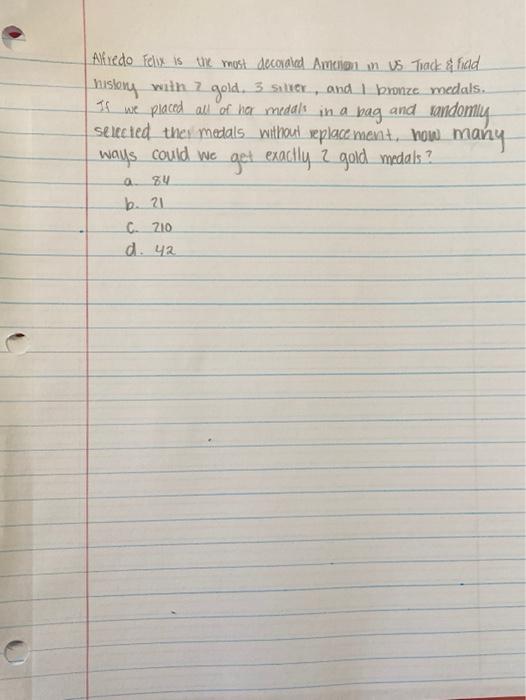 Alfredo Felix is the most decorated American in US Track & Field
history with 7 gold, 3 silver, and 1 bronze medals.
If we placed all of her medals in a bag and randomly
selected ther medals without replacement, how many
ways could we get exactlly 2 gold medals?
a. 84
b. 21
c. 210
d. 42